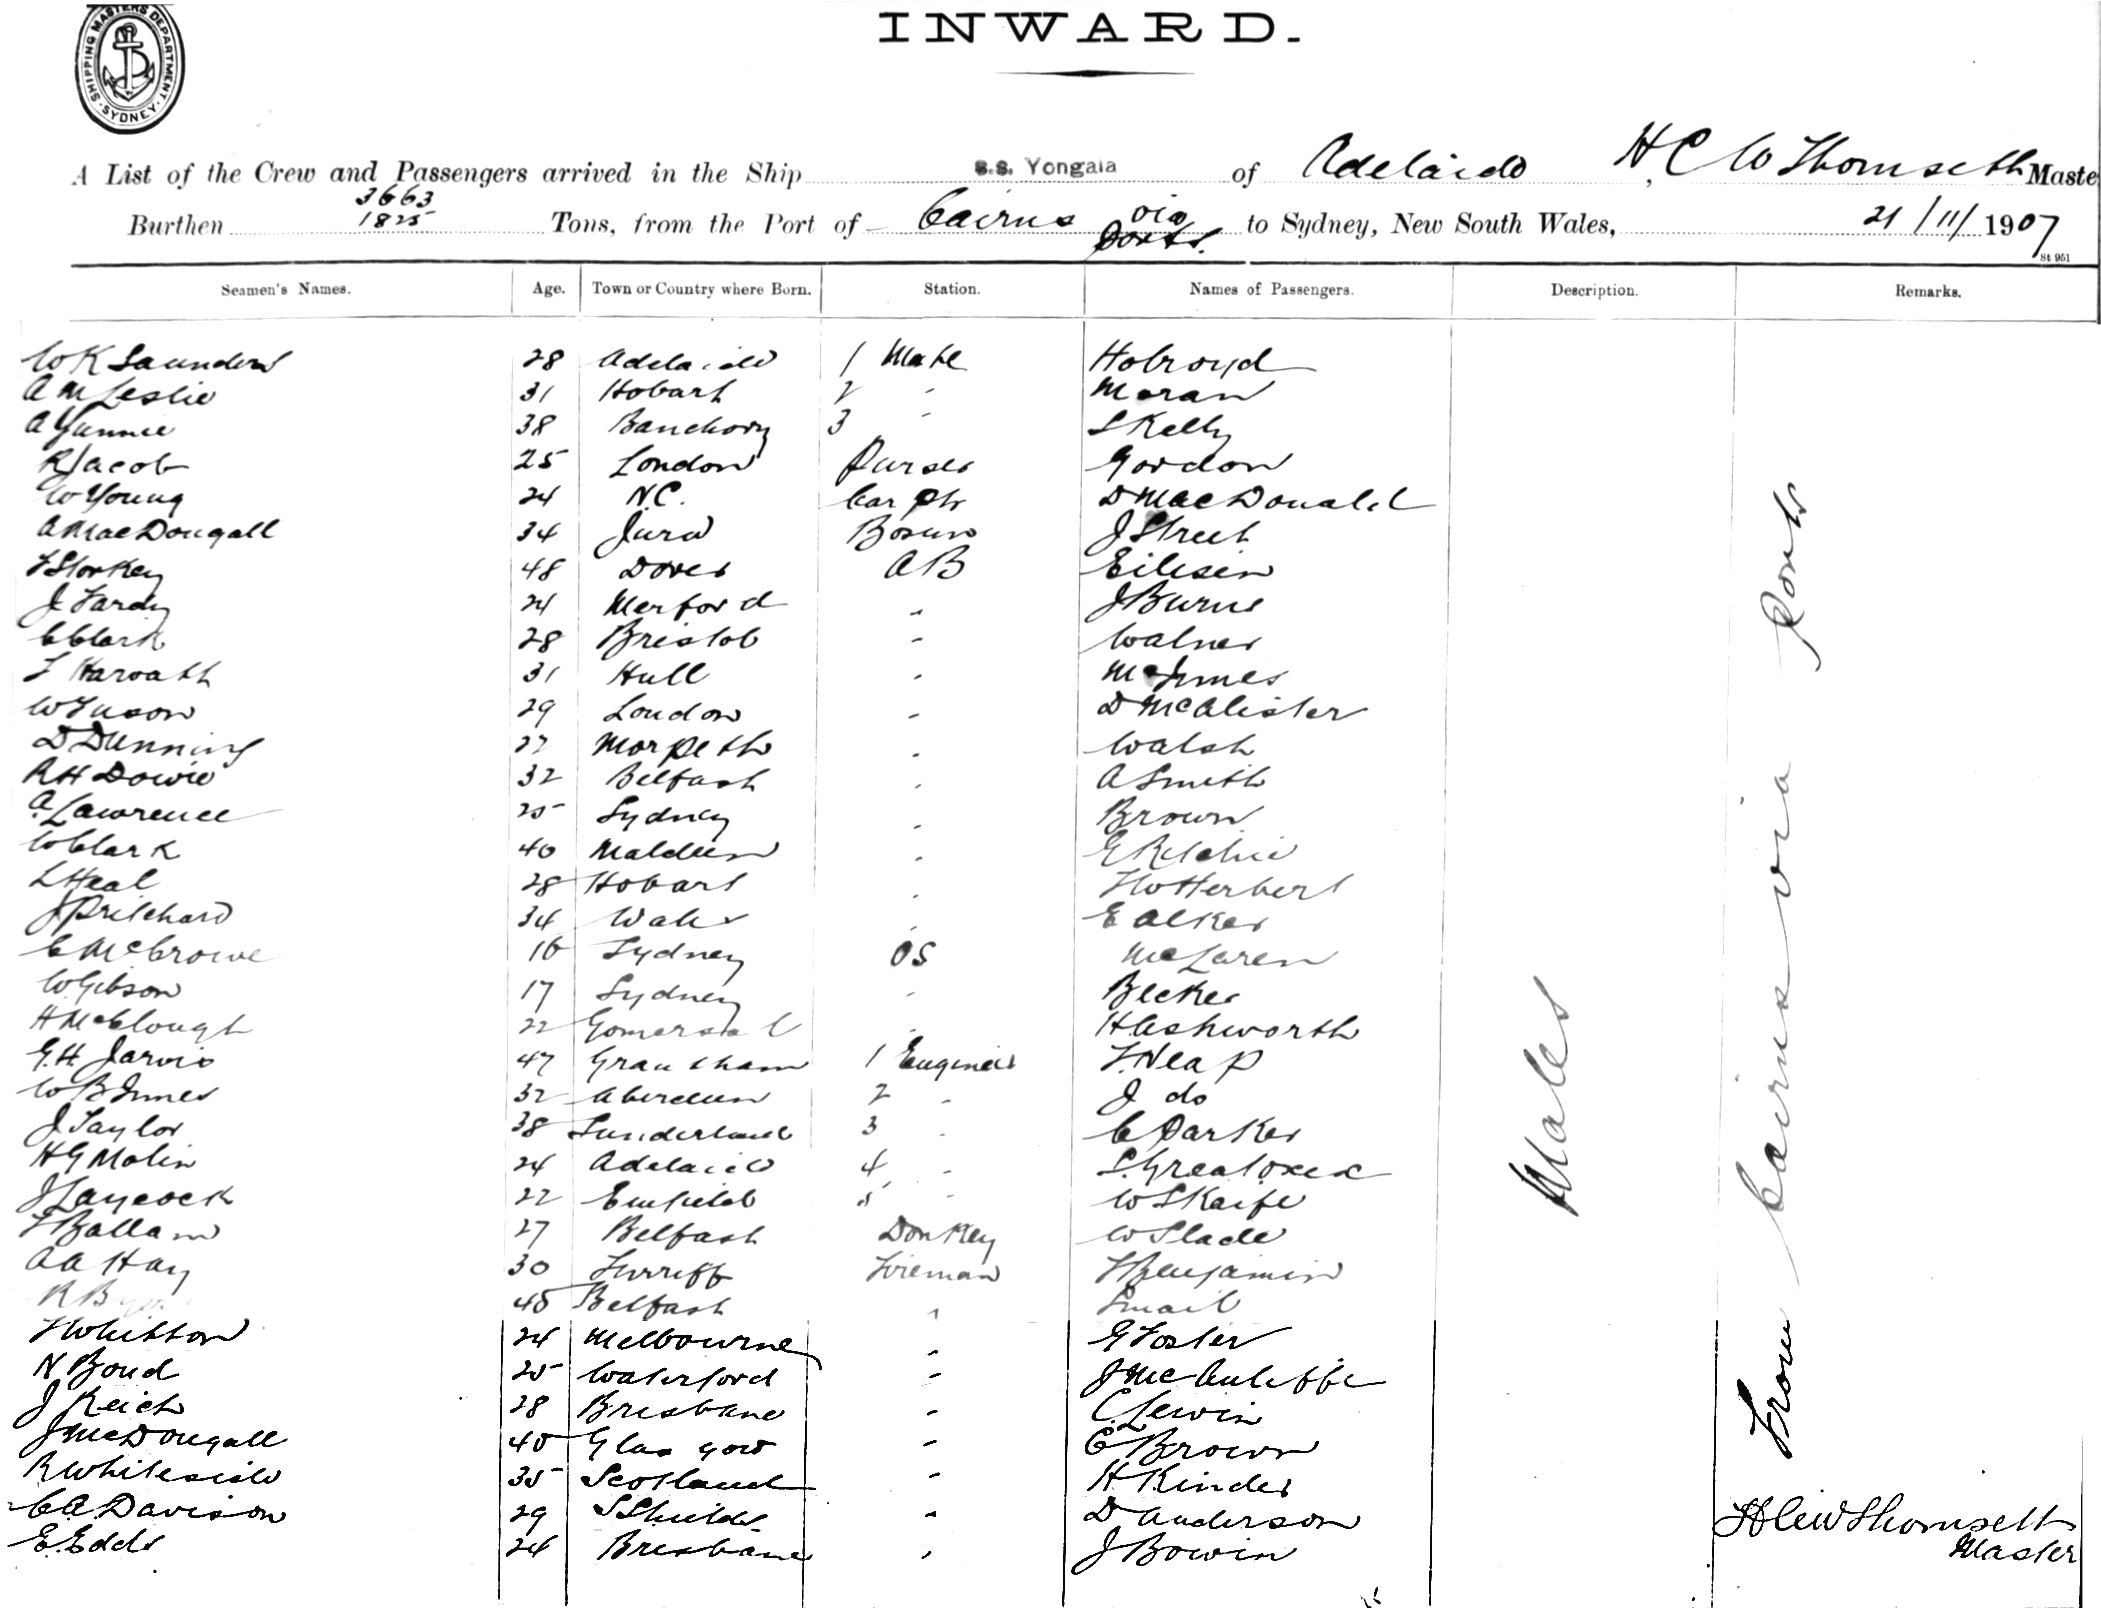 SHIPPING MASTERS DEPARTMENT · SYDNEY ·
INWARD.
A List of the Crew and Passengers arrived in the Ship s.s. Yongala of Adelaide H C W Thomseth Maste
Burthen 3663 1825 Tons, from the Port of Cairns via Ports. to Sydney, New South Wales, 21/11/1907
St 951
Seamen's Names. Age. Town or Country where Born. Station. Names of Passengers. Description. Remarks.
W K Saunders 28 Adelaide 1 Mate Holroyd
A M Leslie 31 Hobart 2 " Moran
A Yunnie 38 Banchory 3 " S Kelly
R Jacob 25 London Purser Gordon
W Young 24 N.C. Carptr D MacDonald
A MacDougall 34 Jura Bosun J Street
F Storkey 48 Dover AB
J Fardy 24 Merford " J Burns
C Clark 28 Bristol "
F Harvath 31 Hull " McInnes
W Tuson 29 London " D McAlister
D Dunning 27 Morpeth " Walsh
R H Dowie 32 Belfast " A Smith
A. Lawrence 25 Sydney " Brown
W Clark 40 Maldon " E Ritchie
L Heal 28 Hobart " F W Herbert
J Pritchard 34 Wales " E Alker
C McCrowe 16 Sydney OS McLaren
W Gibson 17 Sydney " Becker
H McClough 22 Gomersal " H Ashworth
G.H. Jarvis 47 Grantham 1 Engineer F. Heap
W B Innes 32 Aberdeen 2 " J do
J Taylor 38 Sunderland 3 " C Parker
H G Molin 24 Adelaide 4 " S. Greatorex
J Laycock 22 Enfield 5 " W Skaife
F Ballam 27 Belfast Donkey W Slade
A A Hay 30 Turriff Fireman F Benjamin
R 45 Belfast " Smail
F Whitton 24 Melbourne " G Foster
N Bond 25 Waterford " J McAuliffe
J Reich 28 Brisbane " C. Lewin
J McDougall 45 Glasgow " C Brown
R Whiteside 35 Scotland " H Kinder
C.A. Davison 29 S Shields " D Anderson
E. Edds 24 Brisbane " J Bowin
Males
From Cairns via Ports
H C W Thomseth
Master